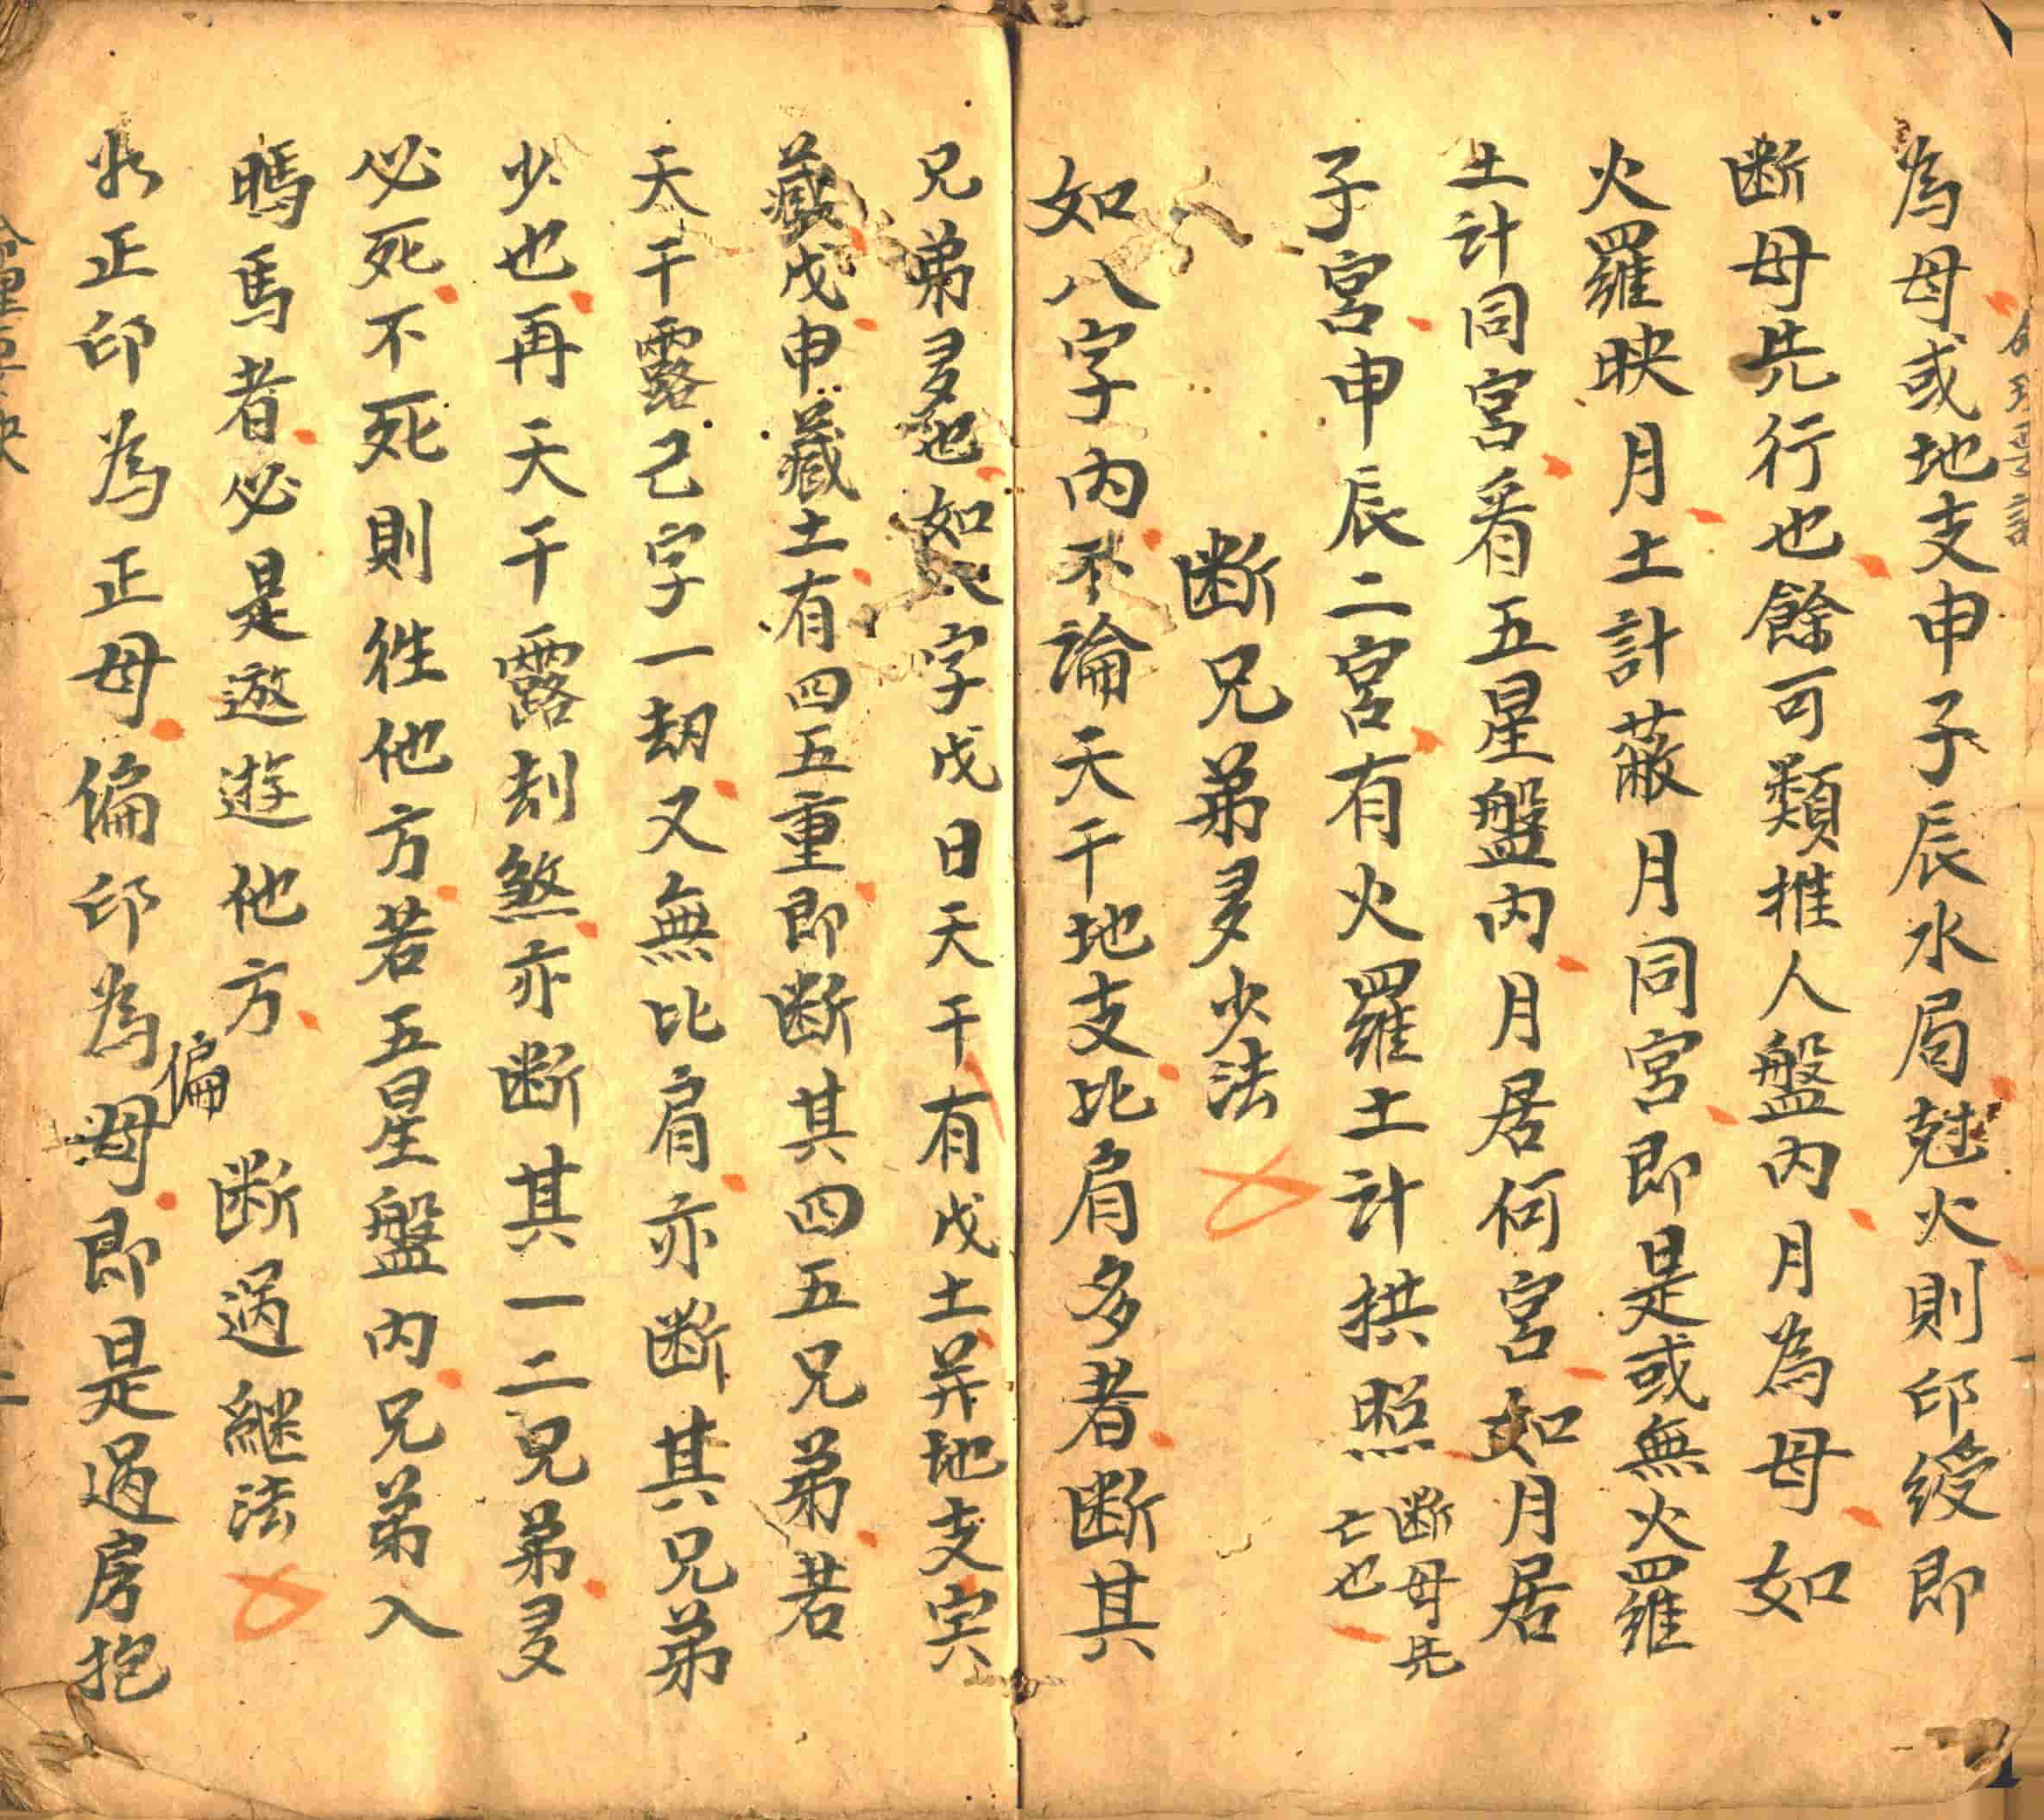 為母或地支申子辰水局尅火則印綬即
断母先行也餘可類推人盤内月為母如
火羅映月土計蔽月同宮即是或無火羅
土計同宮看五星盤内月居何宮如月居
子宮申辰二宮有火羅土計拱照断母先
亡也
断兄弟多少法
如八字内不論天干地支比肩多者断其
兄弟多也如八字戊日天干有戊土并地支寅
藏戊申藏土有四五重即断其四五兄弟若
天干露己字一刼又無比肩亦断其兄弟
少也再天干露刦煞亦断其一二兄弟多
必死不死則徃他方若五星盤内兄弟入
馬者必是遨遊他方
断過継法
正印為正母偏印為偏母即是過房抱